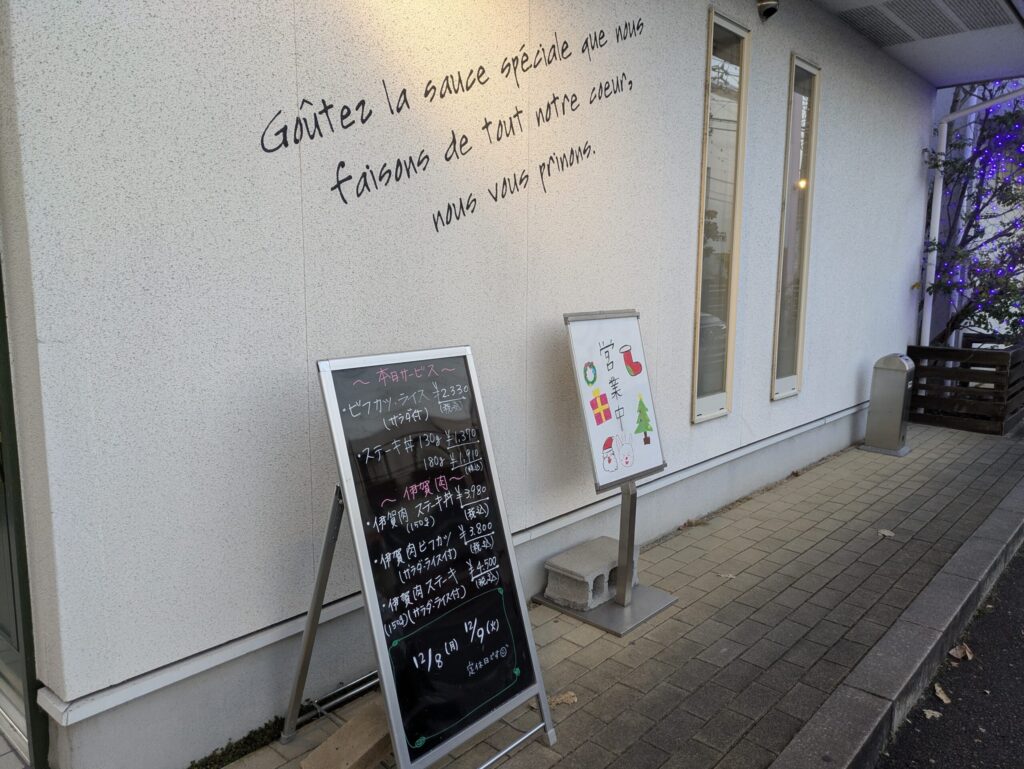 Goûtez la sauce spéciale que nous
faisons de tout notre coeur,
nous vous prinons.
～本日サービス～
・ビフカツ・ライス ¥2.330
(サラダ付) (税込)
・ステーキ丼 130g ¥1.370
180g ¥1.910
(税込)
～伊賀肉～
・伊賀肉 ステーキ丼 ¥3.980
(150g) (税込)
・伊賀肉ビフカツ ¥3.800
(サラダ・ライス付) (税込)
・伊賀肉ステーキ ¥4.500
(150g)(サラダ・ライス付) (税込)
12/8(月) 12/9(火)
定休日です
営業中